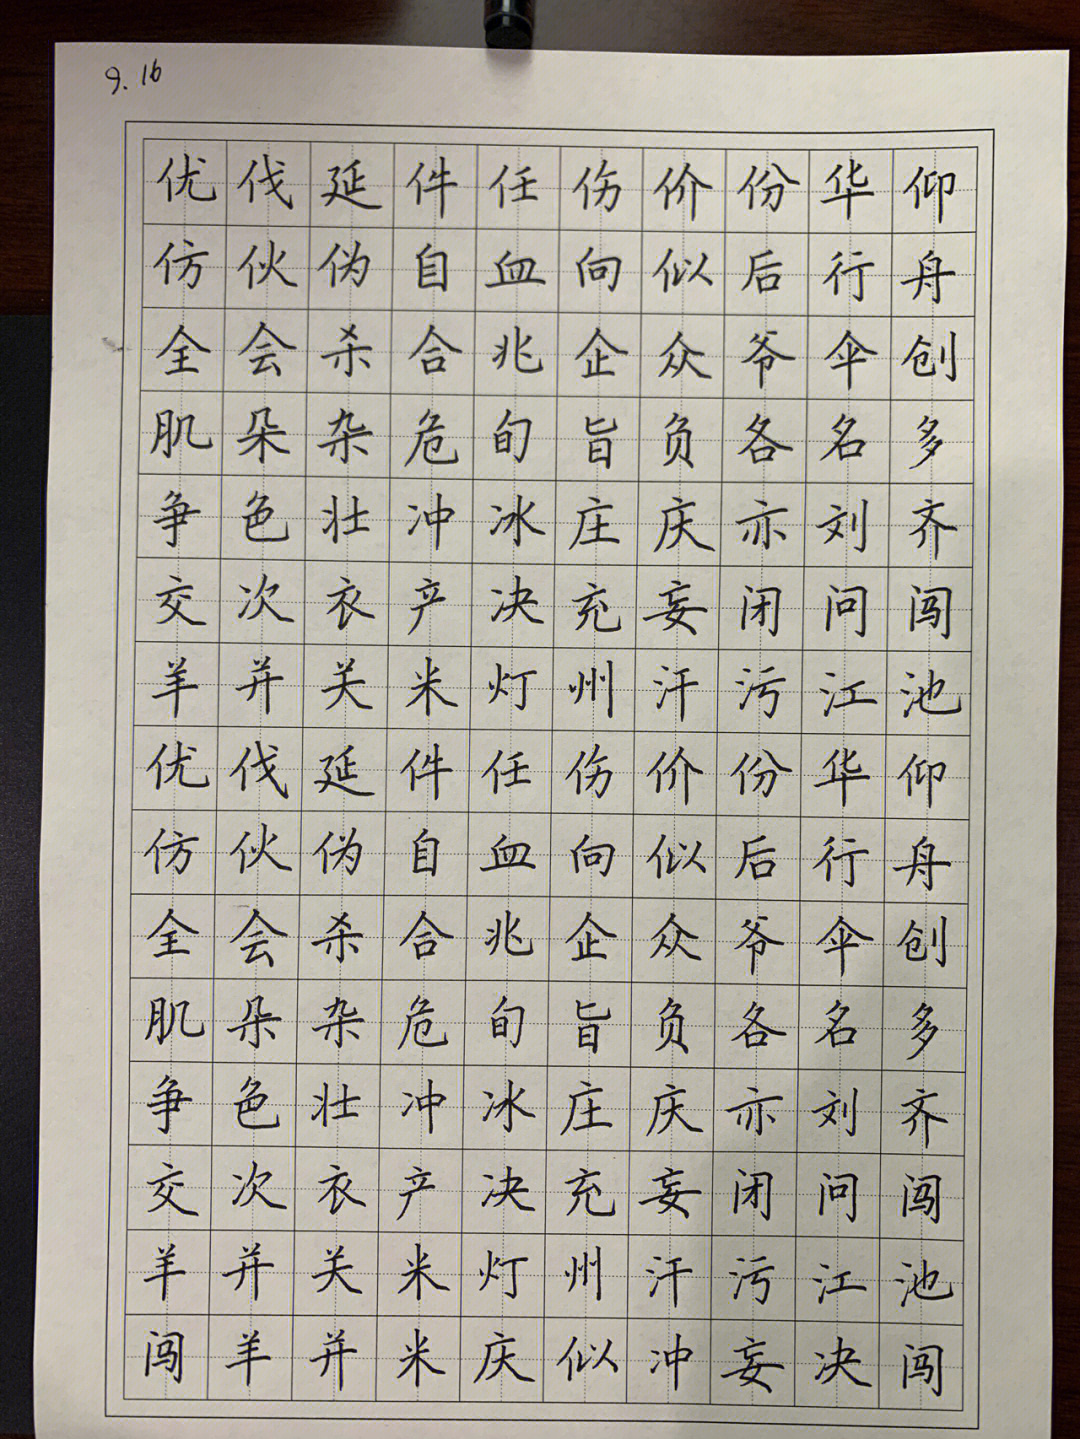 9.16
优伐延件任伤价份华仰
仿伙伪自血向似后行舟
全会杀合兆企众爷伞创
肌朵杂危旬旨负各名多
争色壮冲冰庄庆亦刘齐
交次衣产决充妄闭问闯
羊并关米灯州汗污江池
优伐延件任伤价份华仰
仿伙伪自血向似后行舟
全会杀合兆企众爷伞创
肌朵杂危旬旨负各名多
争色壮冲冰庄庆亦刘齐
交次衣产决充妄闭问闯
羊并关米灯州汗污江池
闯羊并米庆似冲妄决闯